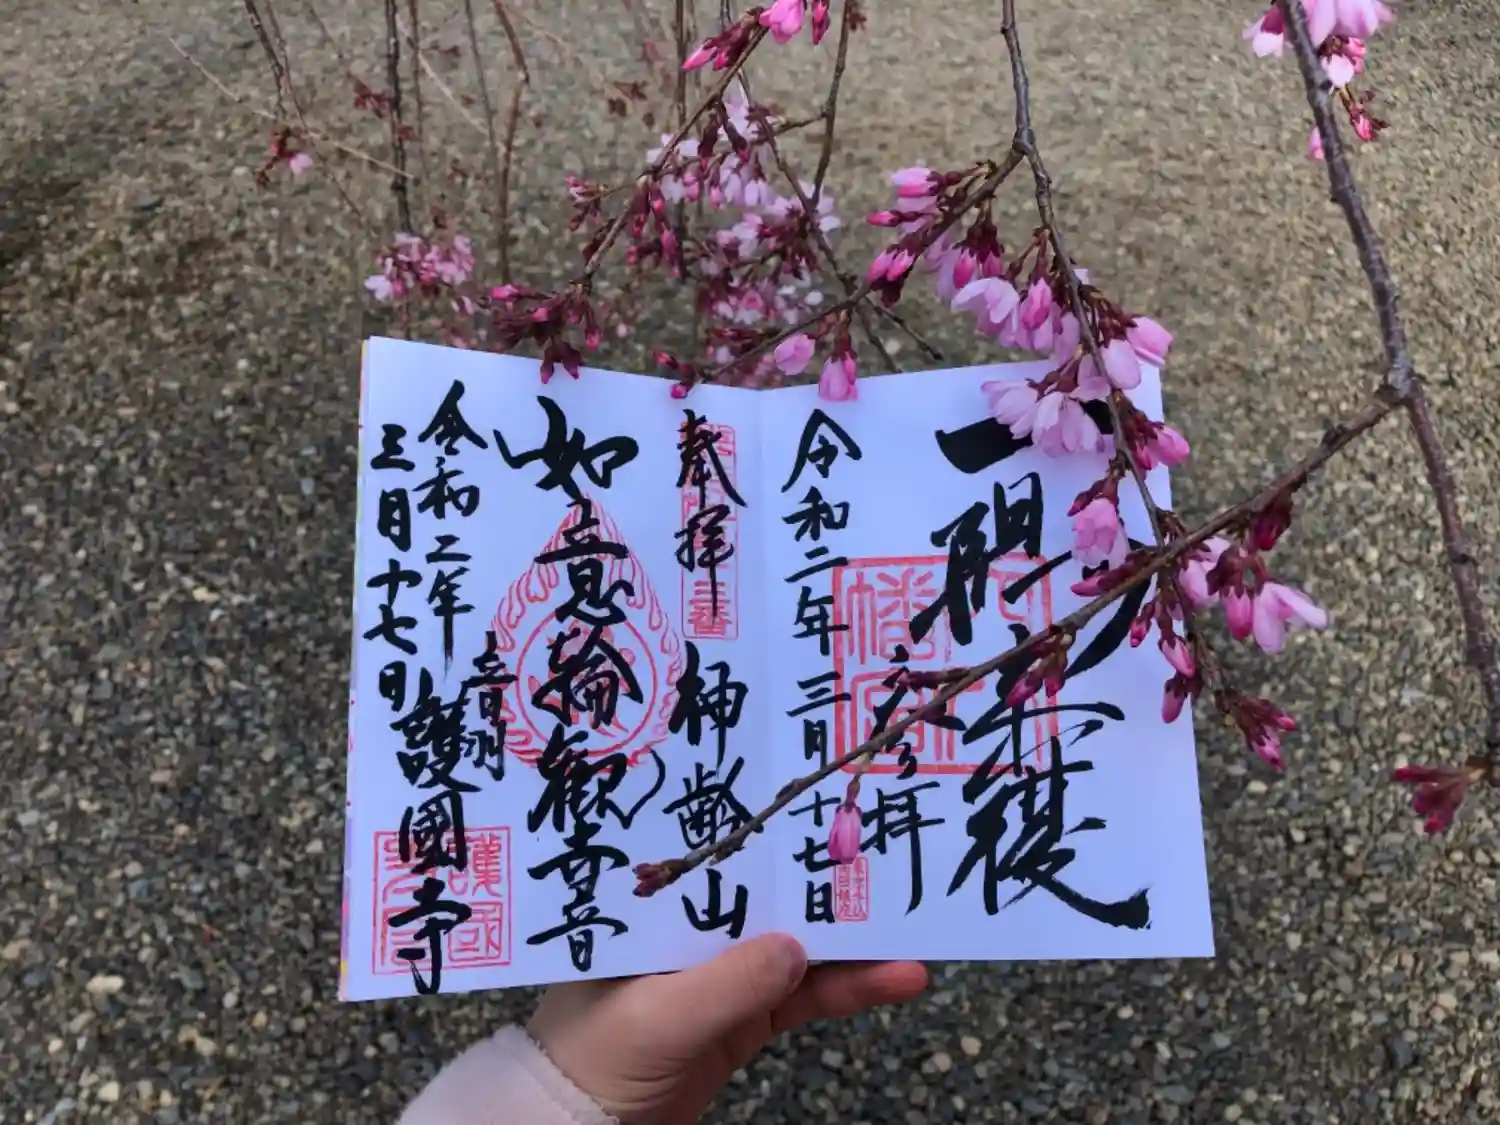 一陽来復
参拝
令和二年三月十七日
奉拝
神齢山
如意輪観世音
音羽
護國寺
令和二年
三月十七日